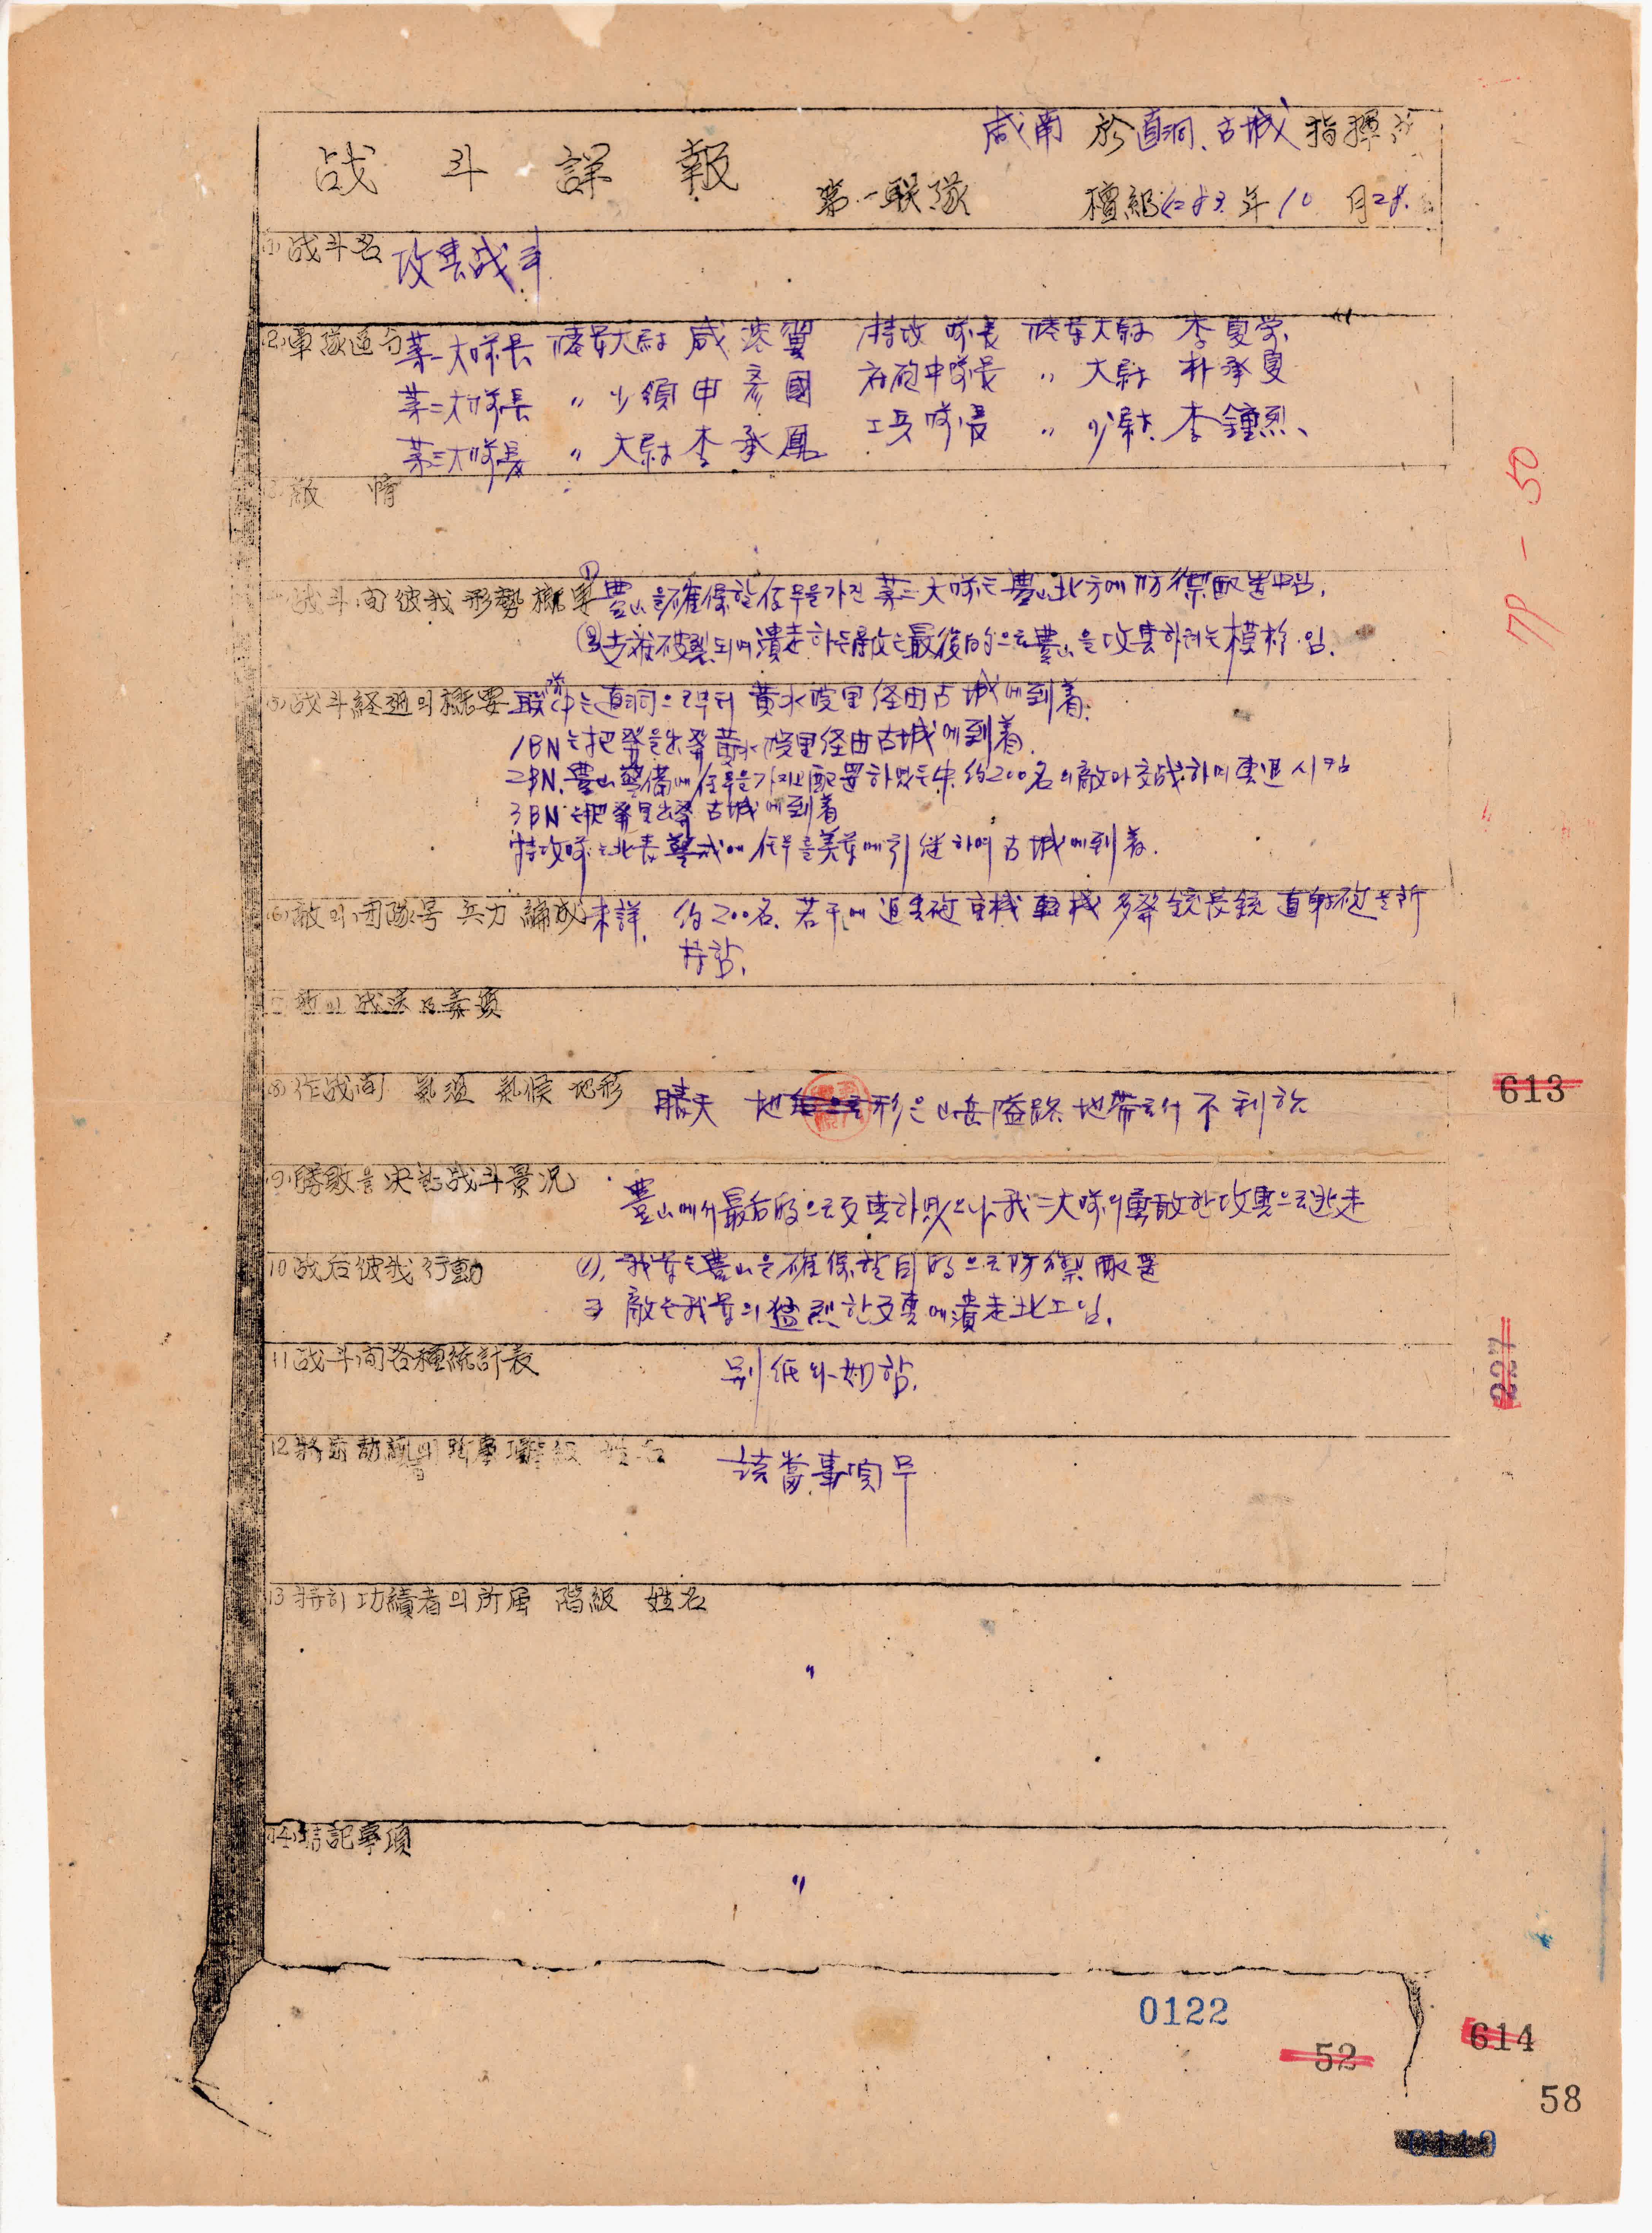 咸南 於 直洞、古城 指揮所
战斗詳報
第一联隊 檀紀4283年10月28日
(1)战斗名 攻擊战斗
(2)軍隊區分 第一大隊長 陸軍大尉 咸 翼 特攻隊長 陸軍大尉 李夏栄
第二大隊長 〃 少領 申彥國 対砲中隊長 〃 大尉 朴承夏
第三大隊長 〃 大尉 李承鳳 工兵隊長 〃 少尉 李鐘烈
(3)敵情
战斗间彼我形勢概要 (1)豊山을確保할任务을가진 第二大隊는 豊山北方에防禦配置中임.
(2)支離破裂되여潰走하는敵은最後的으로豊山을攻擊하려는模样임.
(5)战斗経過의概要 联隊는直洞으로부터 黄水院里経由古城에到着.
1BN는把発을出発黄水院里経由古城에到着.
2BN.豊山警備에任务을가지고配置하였는中約200名의敵과交战하여擊退시킴
3BN는把発里出発 古城에到着
特攻隊는北青警戒에任务를美軍에引継하여古城에到着.
(6)敵의団隊号 兵力 編成 未詳. 約200名. 若干의 迫擊砲 重機 軽機 多発銃長銃 直射砲를所
持함.
敵의战法及素質
(8)作战间 氣温 氣候 地形 晴天 地形은山岳隘路 地帯로서 不利함
(9)勝敗을決한战斗景况 豊山에서最后的으로反擊하였으나我二大隊의勇敢한攻擊으로逃走
10 战后彼我行動 (1). 我軍는豊山을確保할目的으로防禦配置
2 敵는我軍의猛烈한反擊에潰走北上임.
11 战斗间各種統計表 別低와如함.
12 該當事項무
13 特히功績者의所属 階級 姓名
〃
(14)特記事項
〃
77-50
613
227
0122
52
614
58